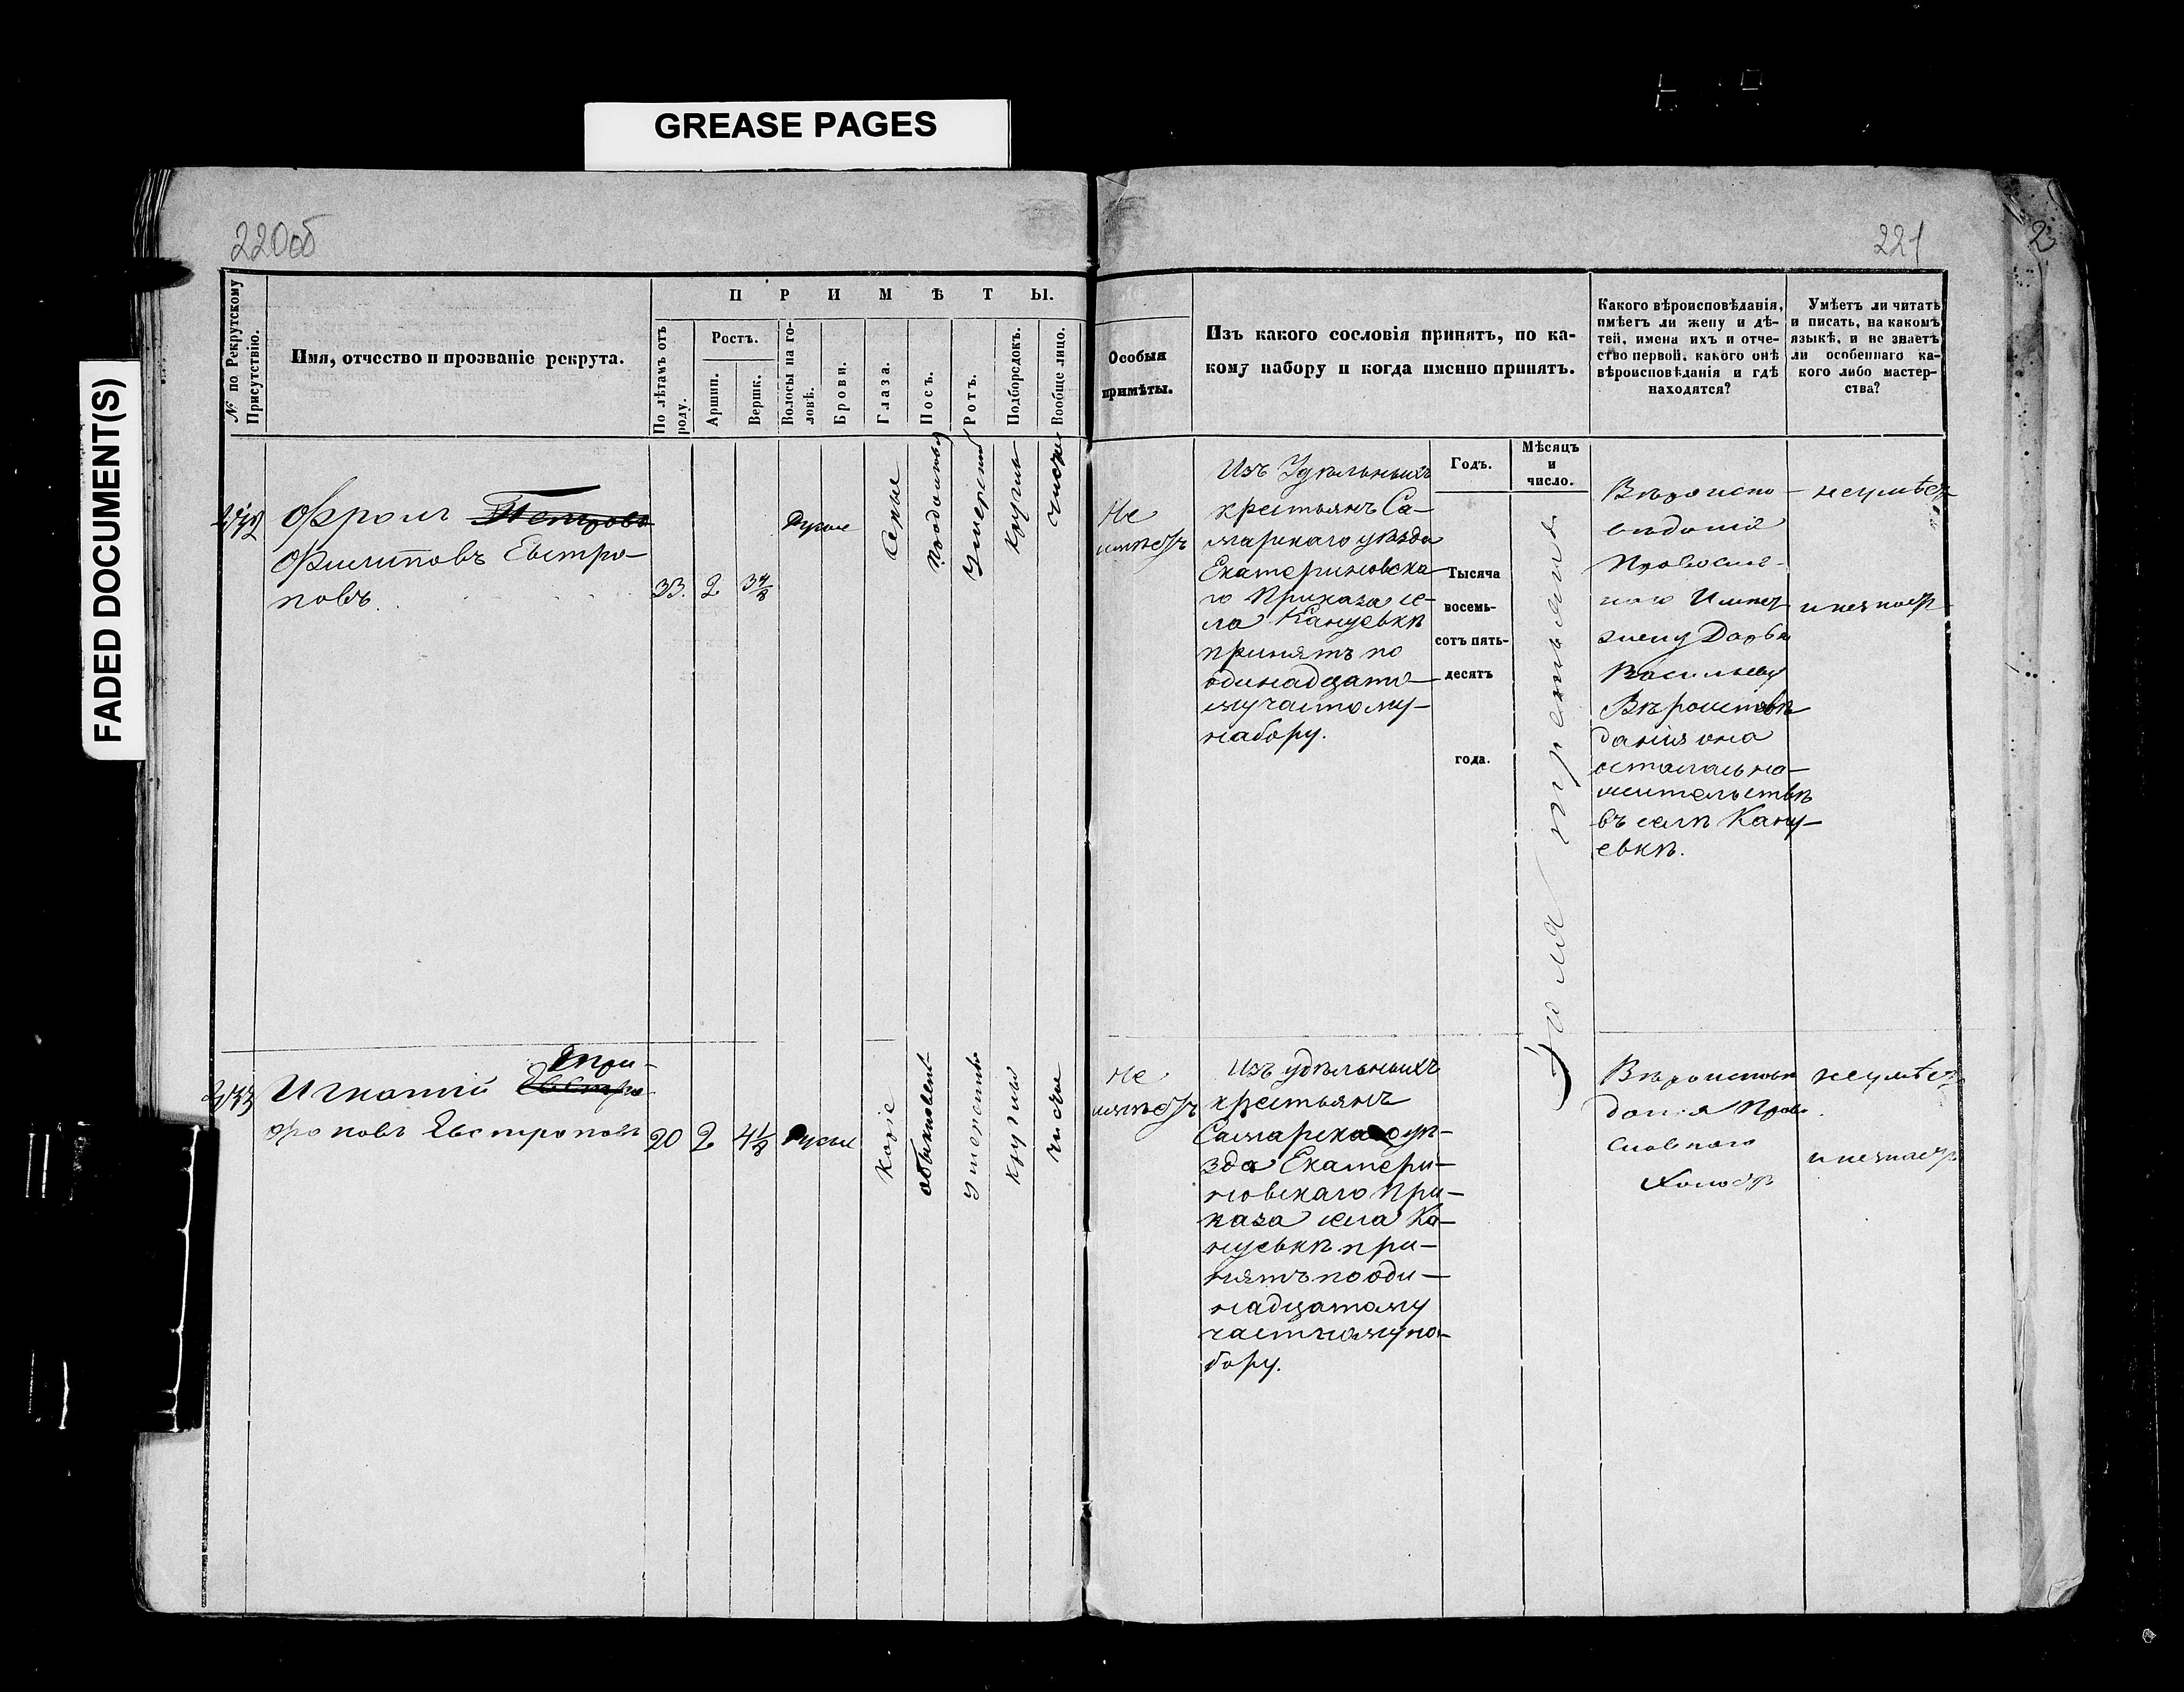 GREASE PAGES
FADED DOCUMENT(S)
220об
221
2
№ по Рекрутскому
Присутствію.
Имя, отчество и прозваніе рекрута.
ПРИМѢТЫ.
По лѣтамъ отъ
роду.
Ростъ.
Аршин.
Вершк.
Волосы на го-
ловѣ.
Брови.
Глаза.
Носъ.
Ротъ.
Подбородокъ.
Вообще лицо.
Особыя
примѣты.
Изъ какого сословія принятъ, по ка-
кому набору и когда именно принятъ.
Какого вѣроисповѣданія,
имѣетъ ли жену и дѣ-
тей, имена ихъ и отче-
ство первой, какого онѣ
вѣроисповѣданія и гдѣ
находятся?
Умѣетъ ли читать
и писать, на какомъ
языкѣ, и не знаетъ
ли особеннаго ка-
кого либо мастер-
ства?
Годъ.
Мѣсяцъ
и
число.
Фролъ Петровъ
Филиповъ Евстро-
повъ.
33. 2 3 4/8
Русые
Серые
Умеренный
Круглый
чистое
Не
имѣетъ
Изъ Удѣльныхъ
крестьянъ Са-
марскаго уѣзда
Екатериновска
го Приказа се-
ла Кануевкѣ
принятъ по
одинадцато-
му частному-
набору.
Тысяча
восемь-
сотъ пять-
десятъ
года.
Іюля третьяго
Вѣроиспо-
вѣданія
Православ-
наго Имѣет
жену Дарья
Васильеву
Вѣроисповѣ
данія она
осталась на-
жительствѣ
въ селѣ Кану-
евкѣ.
неумѣетъ
и незнаетъ
Игнатій Евстро
Три-
фоновъ Евстроповъ
20 2 4 1/2 Русые
Каріе
обыкновен-
умеренный
круглый
чистое
Не
имѣетъ
Изъ удѣльныхъ
крестьянъ
Самарскаго уѣ-
зда Екатери-
новскаго При-
каза села Ка-
нуевкѣ при-
нятъ по оди-
надцатому
частному на-
бору.
Вѣроисповѣ
данія Право
славнаго
Холостъ
неумѣетъ
и незнаетъ